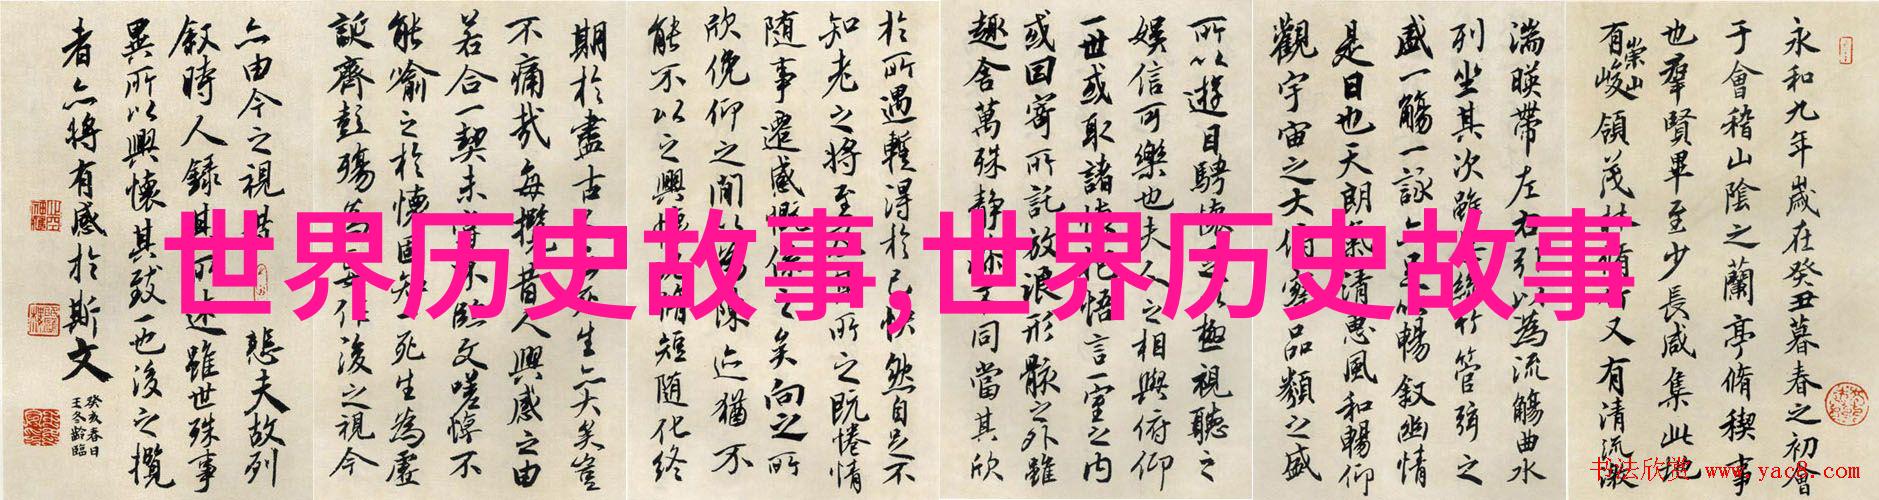 世界历史故事,世界历史故事
永和九年歲在癸丑暮春之初會
于會稽山陰之蘭亭脩稧事
也羣賢畢至少長咸集此地
有崇山峻領茂林脩竹又有清流激
湍暎帶左右引以為流觴曲水
列坐其次雖絲竹管弦之
盛一觴一詠亦足以暢敘幽情
是日也天朗氣清惠風和暢仰
觀宇宙之大俯察品類之盛
所以遊目騁懷足以極視聽之
娛信可樂也夫人之相與俯仰
一世或取諸懷抱悟言一室之內
或因寄所託放浪形骸之外雖
趣舍萬殊靜躁不同當其欣
於所遇暫得於己快然自足不
知老之將至所之既惓情
隨事遷感慨係之矣向之所
欣俛仰之間以為陳迹猶不
能不以之興懷脩短隨化終
期於盡古人生亦大矣豈
不痛哉每攬昔人興感之由
若合一契未嘗不臨文嗟悼不
能喻之於懷固知一死生為虛
誕齊彭殤為妄作後之視今
亦由今之視昔悲夫故列
敘時人錄其所述雖世殊事
異所以興懷其致一也後之攬
者亦將有感於斯文
癸亥春日
王冬齡臨
书法欣赏 www.yac8.com